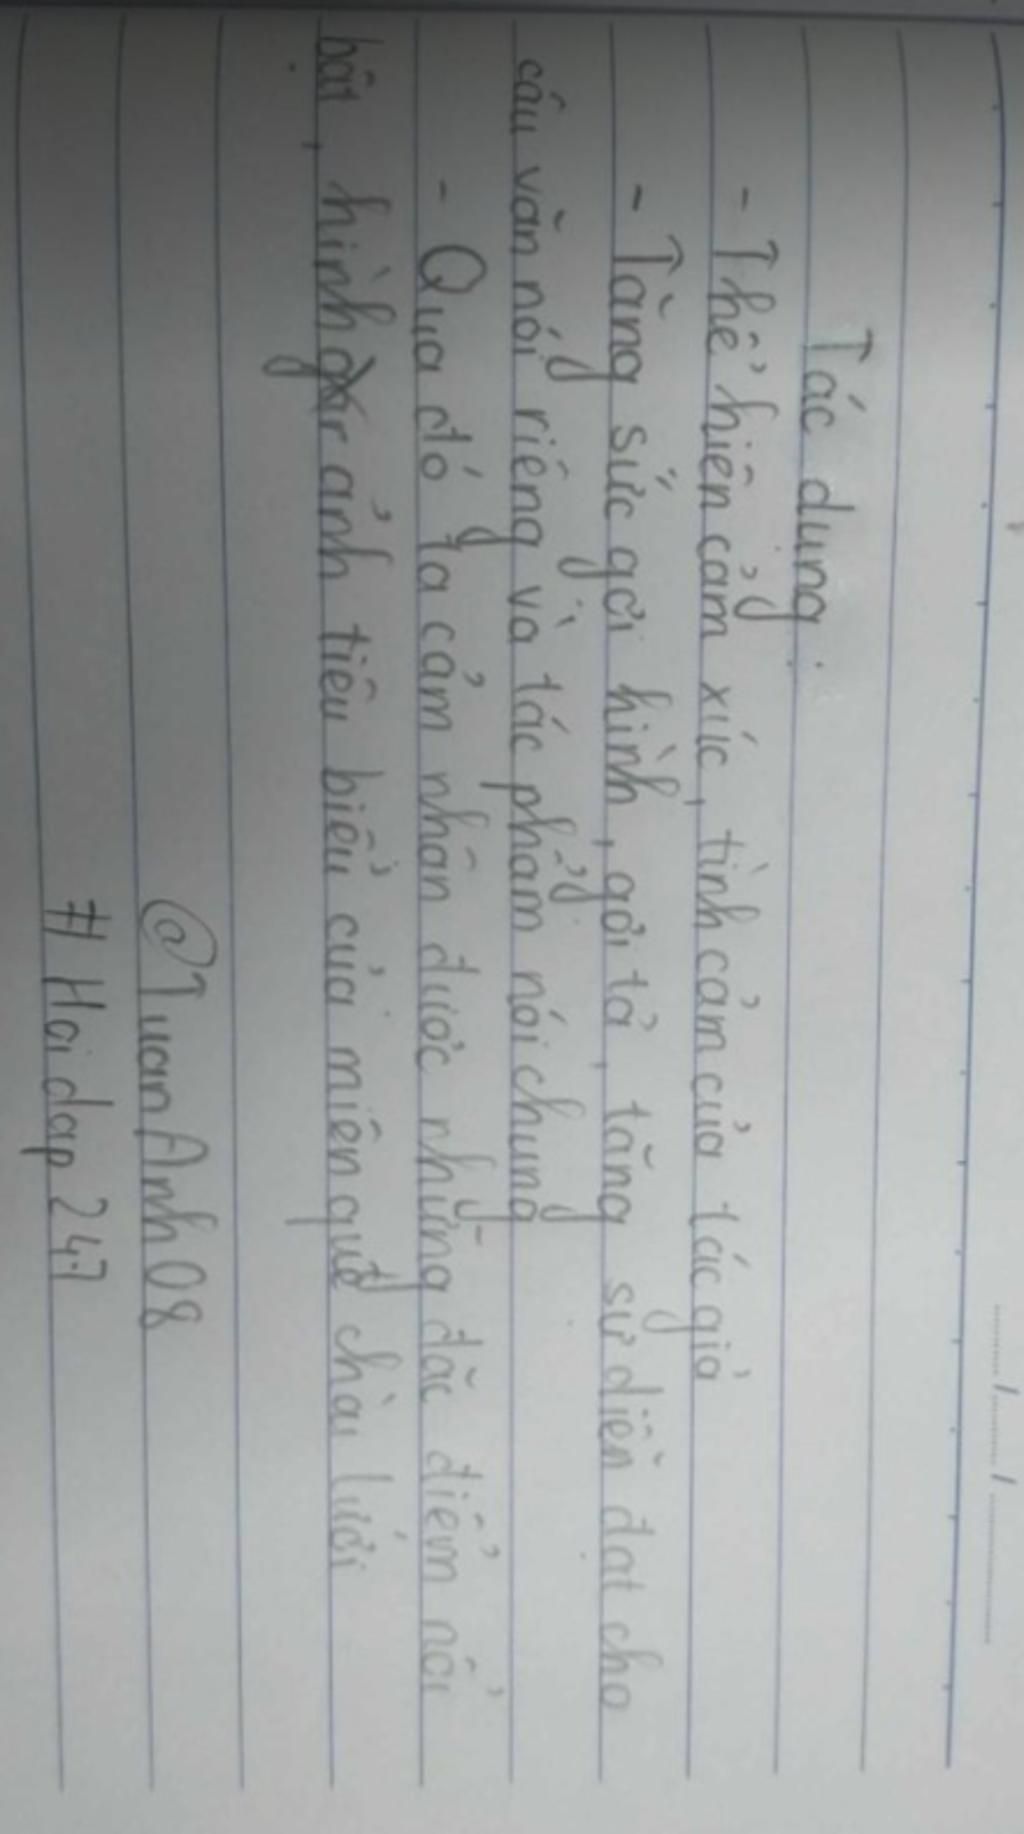 Tác dụng:
- Thể hiện cảm xúc, tình cảm của tác giả
- Tăng sức gợi hình, gợi tả, tăng sự diễn đạt cho
câu văn nói riêng và tác phẩm nói chung
- Qua đó ta cảm nhận được những đặc điểm nổi
bật, hình ảnh tiêu biểu của miền quê chài lưới
@TuanAnh08
# Hoidap247